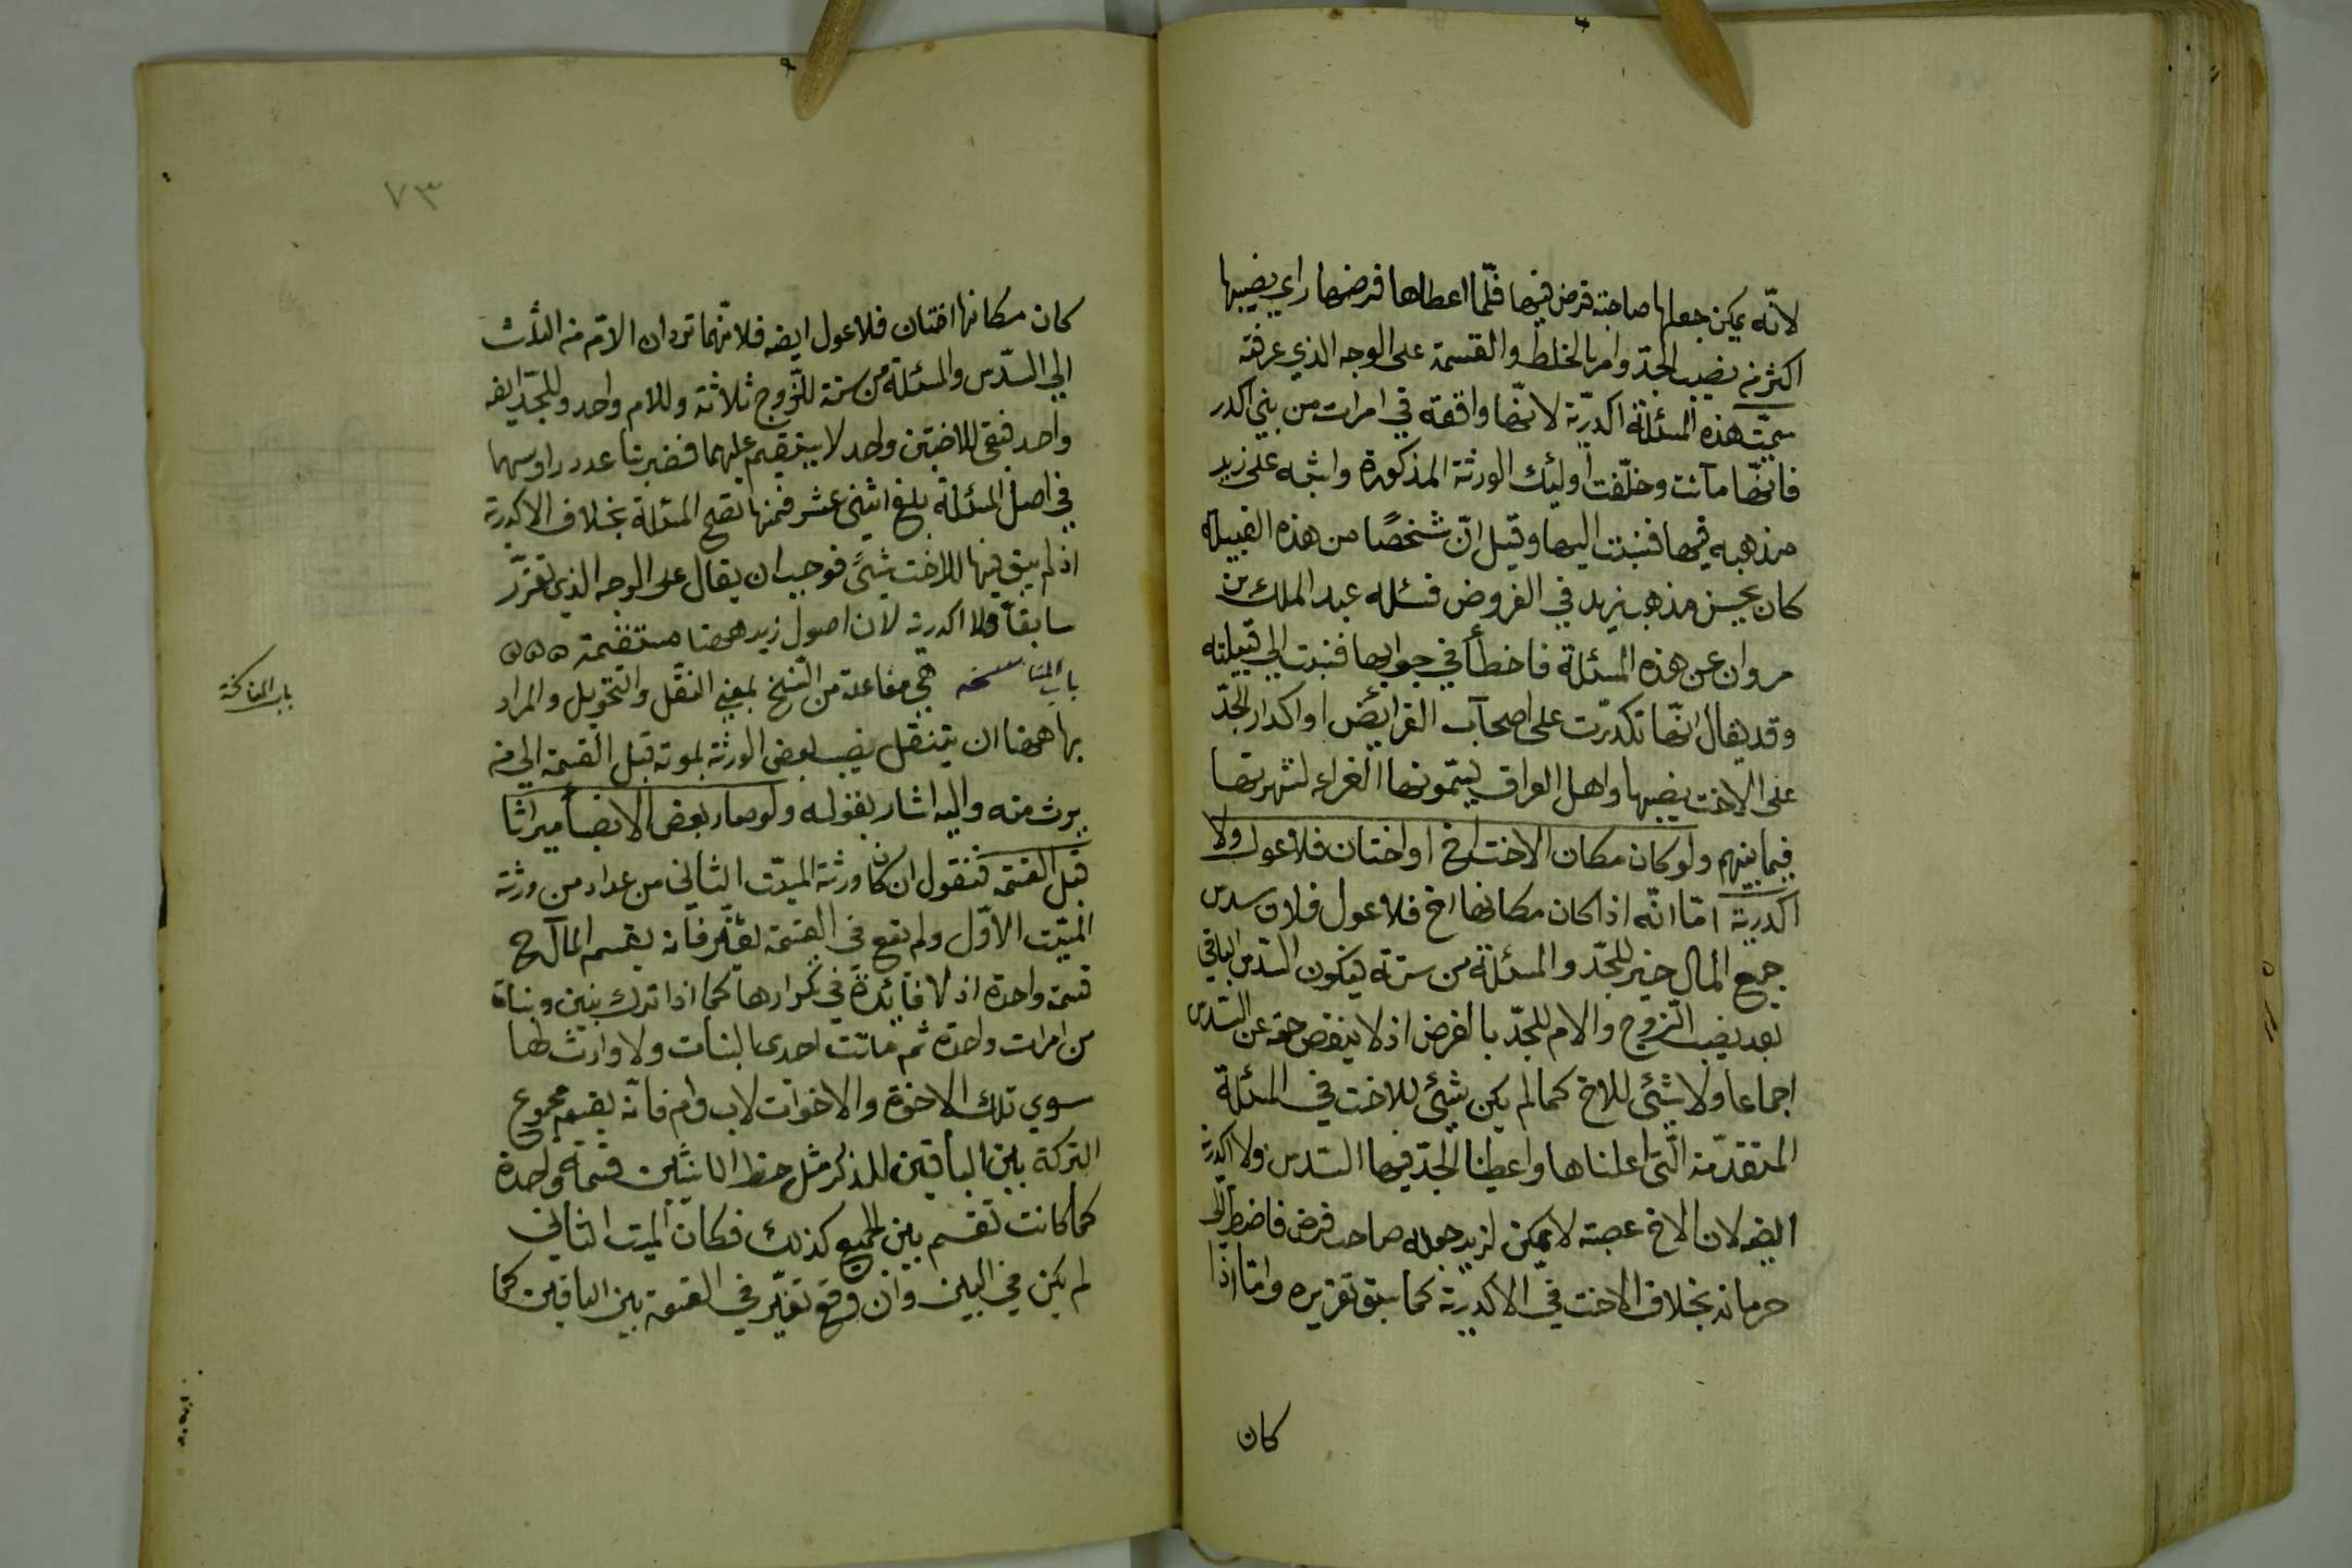 لانّه يمكن جعلها صاحبة فرض فيها فلمّا اعطاها فرضها راي نصيبها
اكثر من نصيب الجدّ وامر بالخلط والقسمة على الوجه الذي عرفته
سمّيت هذه المسئلة اكدريّة لانّها واقعة في امرات من بني اكدر
فانّها ماتت وخلّفت اوليك الورثة المذكورة واشبه على زيد
مذهبه فيها فنسبت اليها وقيل انّ شخصًا من هذه القبيله
كان يحسن مذهب زيد في الفروض فسئله عبد الملك بن
مروان عن هذه المسئلة فاخطأ في جوابها فنسبت الي قبيلته
وقد يقال انّها تكدّرت على اصحاب الفرايض او اكدار الجدّ
على الاخت نصيبها واهل العراق يسمّونها الغراء لشهرتها
فيما بينهم ولو كان مكان الاخت اخ او اختان فلا عول ولا
اكدرية امّا انّه اذا كان مكانها اخ فلا عول فلان سدس
جميع المال خير للجدّ والمسئلة من ستة فيكون السّدس الباقي
بعد نصيب الزّوج والام للجدّ بالفرض اذ لا ينقص حقه عن السّدس
اجماعا ولا شيئ للاخ كما لم يكن شيئ للاخت في المسئلة
المتقدّمة الّتي اعلناها واعطينا الجدّ فيها السّدس ولا اكدرية
ايضه لان الاخ عصبة لا يمكن لزيد جعله صاحب فرض فاضطر الى
حرمانه بخلاف الاخت في الاكدرية كما سبق تقريره وامّا اذا
كان
٧٣
كان مكانها اختان فلا عول ايضه فلانّهما تردان الامّ من الثلث
الي السّدس والمسئلة من ستة للزّوج ثلاثة وللام واحد وللجدّ ايضه
واحد فبقي للاختين واحد لا ينقسم عليهما فضربنا عدد راوسهما
في اصل المسئلة بلغ اثنى عشر فمنها تصح المسئلة بخلاف الاكدرية
اذ لم يبق فيها للاخت شيئً فوجب ان يقال على الوجه الذي تقرّر
سابقاً فلا اكدرية لان اصول زيد ههنا مستقيمة
باب المناسخه هي مفاعلة من النّسخ بمعني النقل والتحويل والمراد
بها ههنا ان ينتقل نصيب بعض الورثة بموته قبل القسمة الي من
يرث منه واليه اشار بقوله ولو صار بعض الانصبا ميراثا
قبل القسمة فنقول ان كان ورثة الميّت الثاني من عداد من ورثة
الميّت الاوّل ولم يقع في القسمة تغيّر فانه يقسم المال ح
قسمة واحدة اذ لا فايدة في تكرارها كما اذا ترك بنين وبناة
من امرات واحدة ثم ماتت احدى البنات ولا وارث لها
سوي تلك الاخوة والاخوات لاب وام فانّه يقسم مجموع
التركة بين الباقين للذكر مثل حظ الانثيين قسمة واحدة
كما كانت تقسم بين الجميع كذلك فكان الميت الثاني
لم يكن في البين وان وقع تغيّر في القسمة بين الباقين كما
باب المناسخة